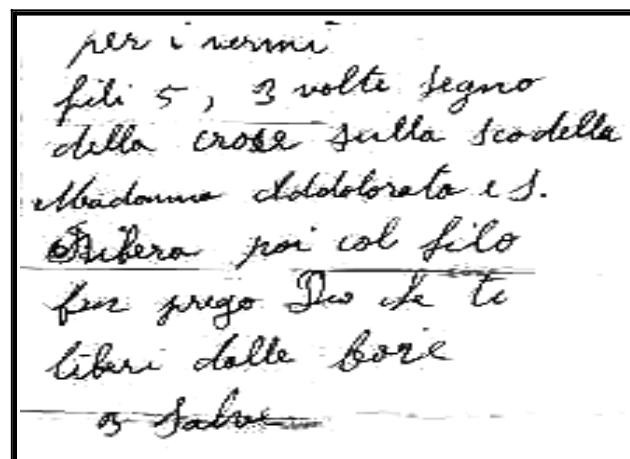 per i vermi
fili 5, 3 volte segno
della croce sulla scodella
Madonna Addolorata e S.
Libera poi col filo
prego Dio che ti
liberi dalle
3 Salve